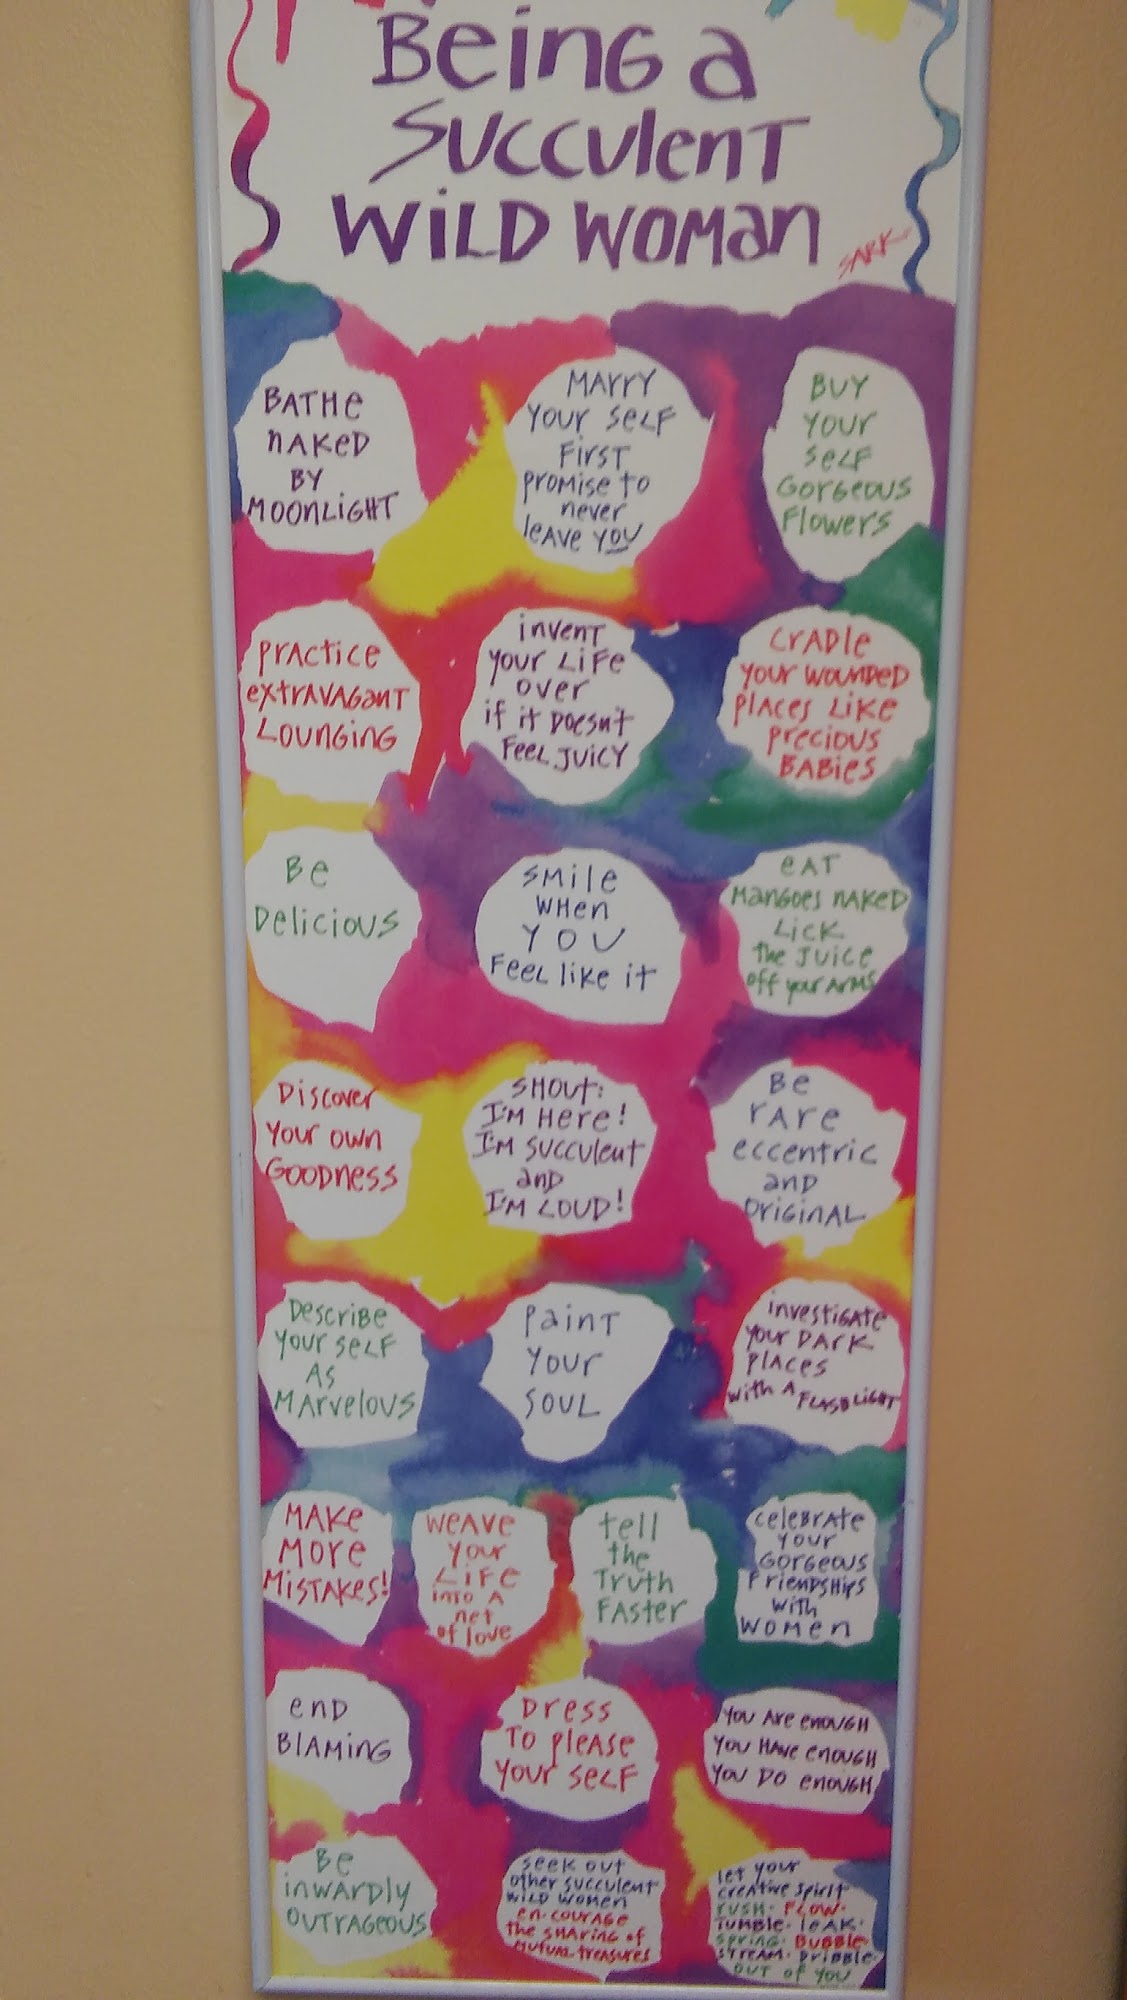 Being a
Succulent
Wild Woman
SARK
Bathe
naked
by
moonlight
Marry
your self
first
promise to
never
leave you
Buy
your
self
gorgeous
flowers
Practice
extravagant
lounging
invent
your life
over
if it doesn't
feel juicy
Cradle
your wounded
places like
precious
babies
Be
Delicious
Smile
when
you
feel like it
eat
mangoes naked
Lick
the juice
off your arms
Discover
your own
goodness
Shout:
I'm here!
I'm succulent
and
I'm loud!
Be
rare
eccentric
and
original
Describe
your self
as
marvelous
Paint
your
soul
investigate
your dark
places
with a flashlight
Make
more
mistakes!
weave
your
life
into a
net
of love
tell
the
Truth
faster
celebrate
your
gorgeous
friendships
with
women
end
blaming
Dress
to please
your self
you are enough
you have enough
you do enough
Be
inwardly
outrageous
seek out
other succulent
wild women
en·courage
the sharing of
mutual treasures
let your
creative spirit
rush· flow·
tumble· leak·
spring· bubble·
stream· dribble·
out of you